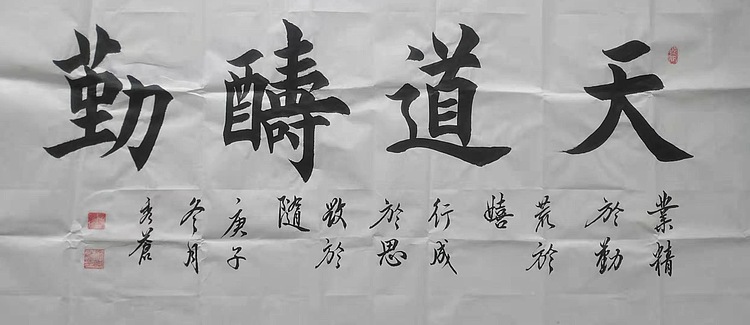 天道酬勤
業精
於勤
荒於
嬉
行成
於思
毀於
隨
庚子
冬月